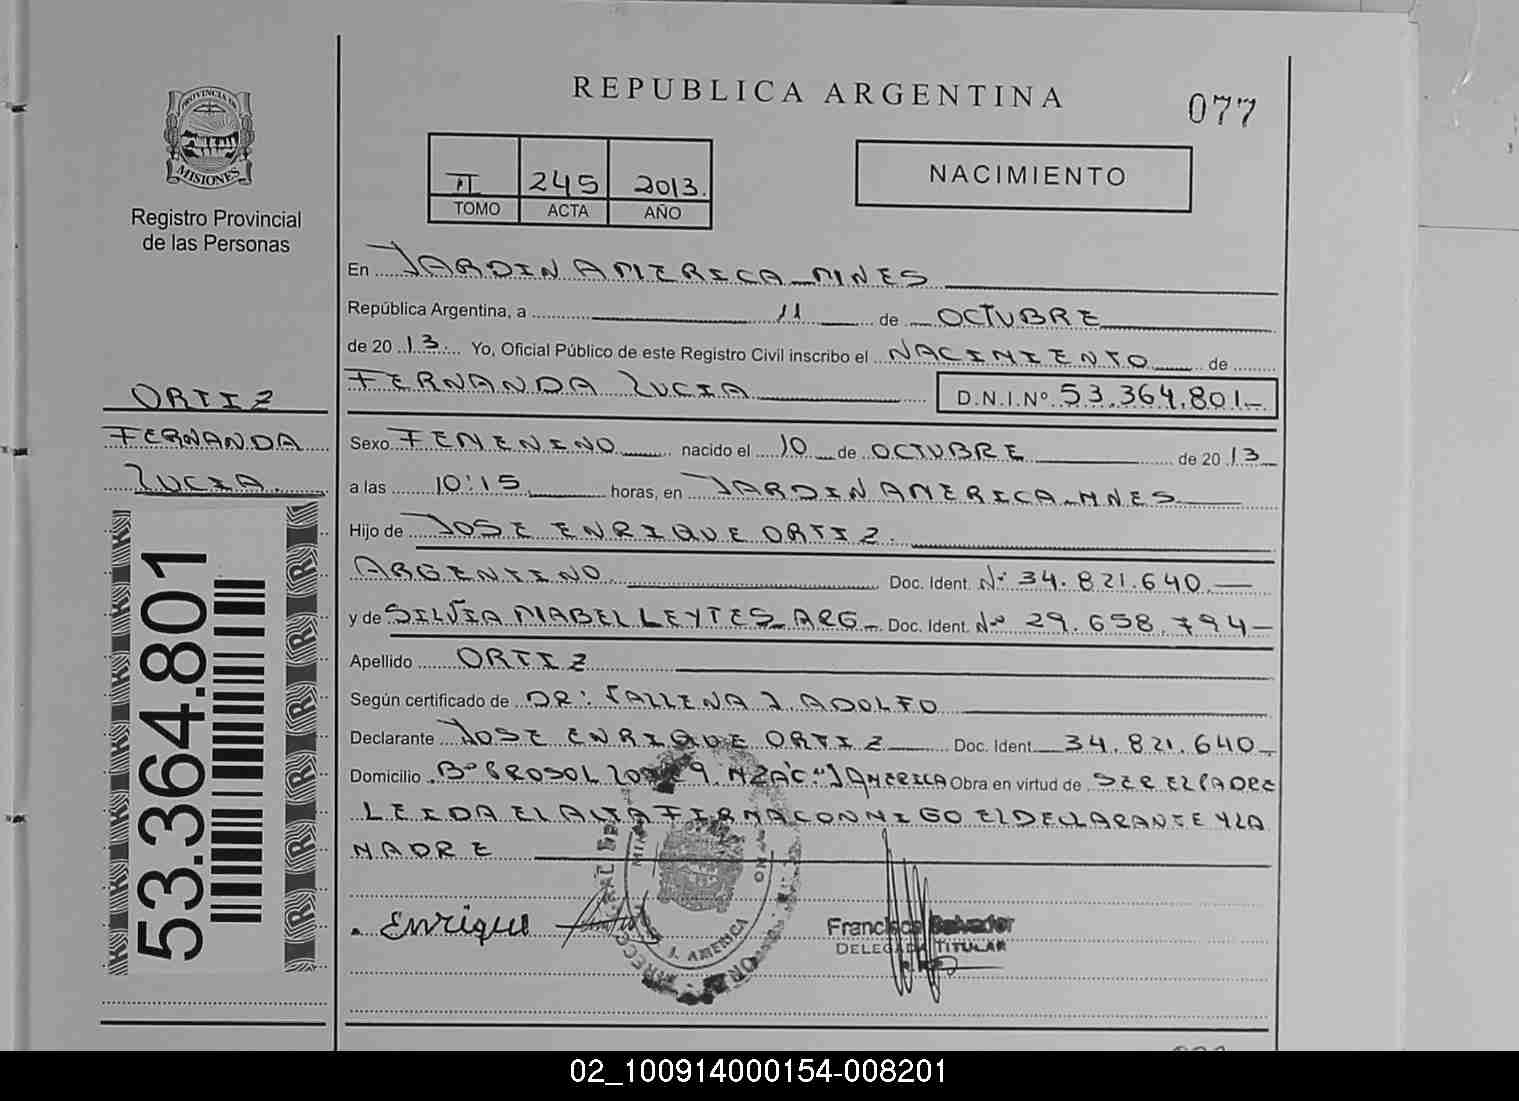 REPUBLICA ARGENTINA
077
PROVINCIA DE
MISIONES
Registro Provincial
de las Personas
II 245 2013.
TOMO ACTA AÑO
NACIMIENTO
En JARDIN AMERICA MNES
República Argentina, a 11 de OCTUBRE
de 2013. Yo, Oficial Público de este Registro Civil inscribo el NACIMIENTO de
FERNANDA LUCIA D.N.I.Nº 53.364.801-
ORTIZ
FERNANDA
LUCIA
Sexo FEMENINO nacido el 10 de OCTUBRE de 2013
a las 10:15 horas, en JARDIN AMERICA-MNES
Hijo de JOSE ENRIQUE ORTIZ.
ARGENTINO Doc. Ident. Nº 34.821.640.
y de SILVIA MABEL LEYTES ARG- Doc. Ident. Nº 29.658.794-
Apellido ORTIZ
Según certificado de DR: J. ADOLFO
Declarante JOSE ENRIQUE ORTIZ Doc. Ident. 34.821.640-
Domicilio Bº MZA"C" J AMERICA Obra en virtud de SER EL PADRE
LEIDA EL ACTA FIRMA CON MIGO EL DECLARANTE Y LA
MADRE
53.364.801
Enrique
J. AMERICA
Francisco Salvador
DELEGADO TITULAR
02_100914000154-008201